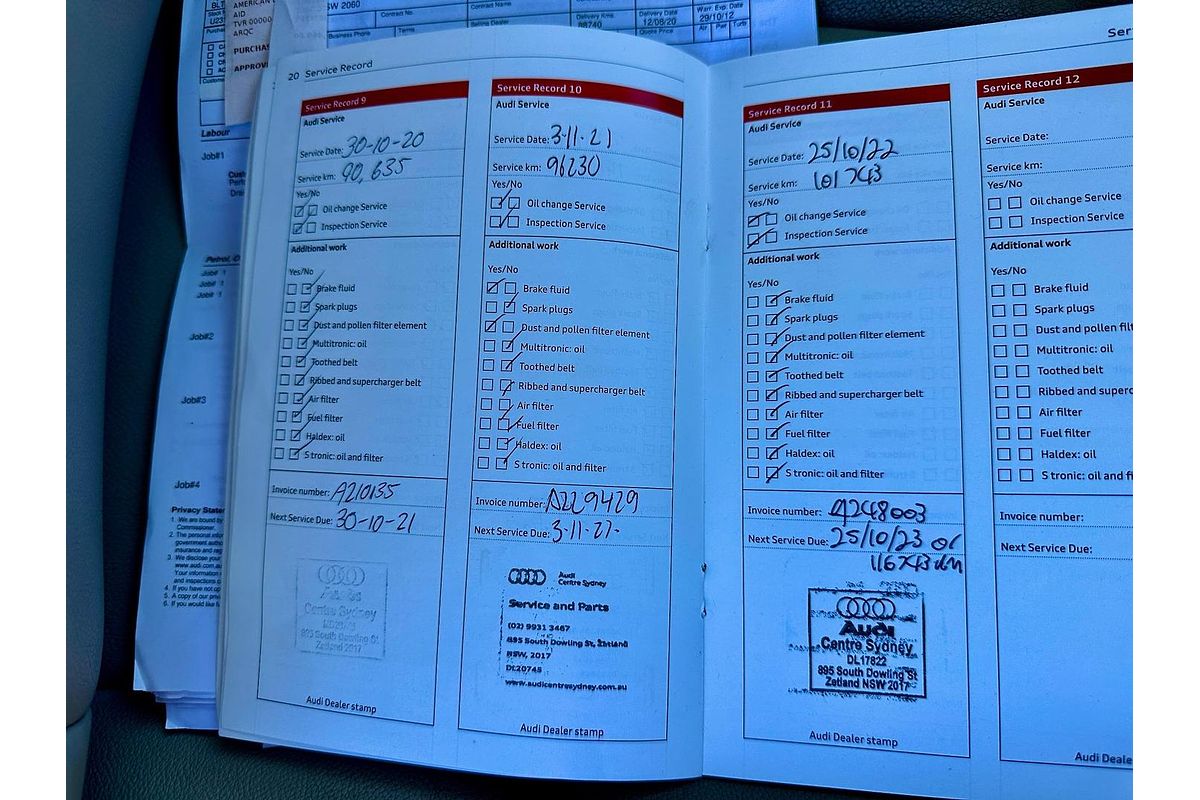 BW 2060
Contract No.
Contract Name
Delivery Kms
88740
Delivery Date
12/08/20
Warr. Exp. Date
29/10/12
Business Phone
Terms
Selling Dealer
Quote Price
Air Pwr Turb
AMERICAN
AID
TVR 00000
ARQC
PURCHAS
APPROV
Labour
Job#1
Job#2
Job#3
Job#4
Privacy State
1. We are bound by
Commissioner.
2. The personal infor
government autho
insurance and reg
3. We disclose your
www.audi.com.au
Your information
and inspections c
4. If you have not op
5. A copy of our priv
6. If you would like f
20 Service Record
Service Record 9
Audi Service
Service Date: 30-10-20
Service km: 90,635
Yes/No
Oil change Service
Inspection Service
Additional work
Yes/No
Brake fluid
Spark plugs
Dust and pollen filter element
Multitronic: oil
Toothed belt
Ribbed and supercharger belt
Air filter
Fuel filter
Haldex: oil
S tronic: oil and filter
Invoice number: A210135
Next Service Due: 30-10-21
Audi
Centre Sydney
895 South Dowling St
Zetland 2017
Audi Dealer stamp
Service Record 10
Audi Service
Service Date: 3-11-21
Service km: 96230
Yes/No
Oil change Service
Inspection Service
Additional work
Yes/No
Brake fluid
Spark plugs
Dust and pollen filter element
Multitronic: oil
Toothed belt
Ribbed and supercharger belt
Air filter
Fuel filter
Haldex: oil
S tronic: oil and filter
Invoice number: A229429
Next Service Due: 3-11-22
Audi
Centre Sydney
Service and Parts
(02) 9931 3467
895 South Dowling St, Zetland
NSW, 2017
DL20745
www.audicentresydney.com.au
Audi Dealer stamp
Service Record 11
Audi Service
Service Date: 25/10/22
Service km: 101743
Yes/No
Oil change Service
Inspection Service
Additional work
Yes/No
Brake fluid
Spark plugs
Dust and pollen filter element
Multitronic: oil
Toothed belt
Ribbed and supercharger belt
Air filter
Fuel filter
Haldex: oil
S tronic: oil and filter
Invoice number: A248003
Next Service Due: 25/10/23 or
116743km
Audi
Centre Sydney
DL17822
895 South Dowling St
Zetland NSW 2017
Audi Dealer stamp
Ser
Service Record 12
Audi Service
Service Date:
Service km:
Yes/No
Oil change Service
Inspection Service
Additional work
Yes/No
Brake fluid
Spark plugs
Dust and pollen filt
Multitronic: oil
Toothed belt
Ribbed and superc
Air filter
Fuel filter
Haldex: oil
S tronic: oil and f
Invoice number:
Next Service Due:
Audi Deale